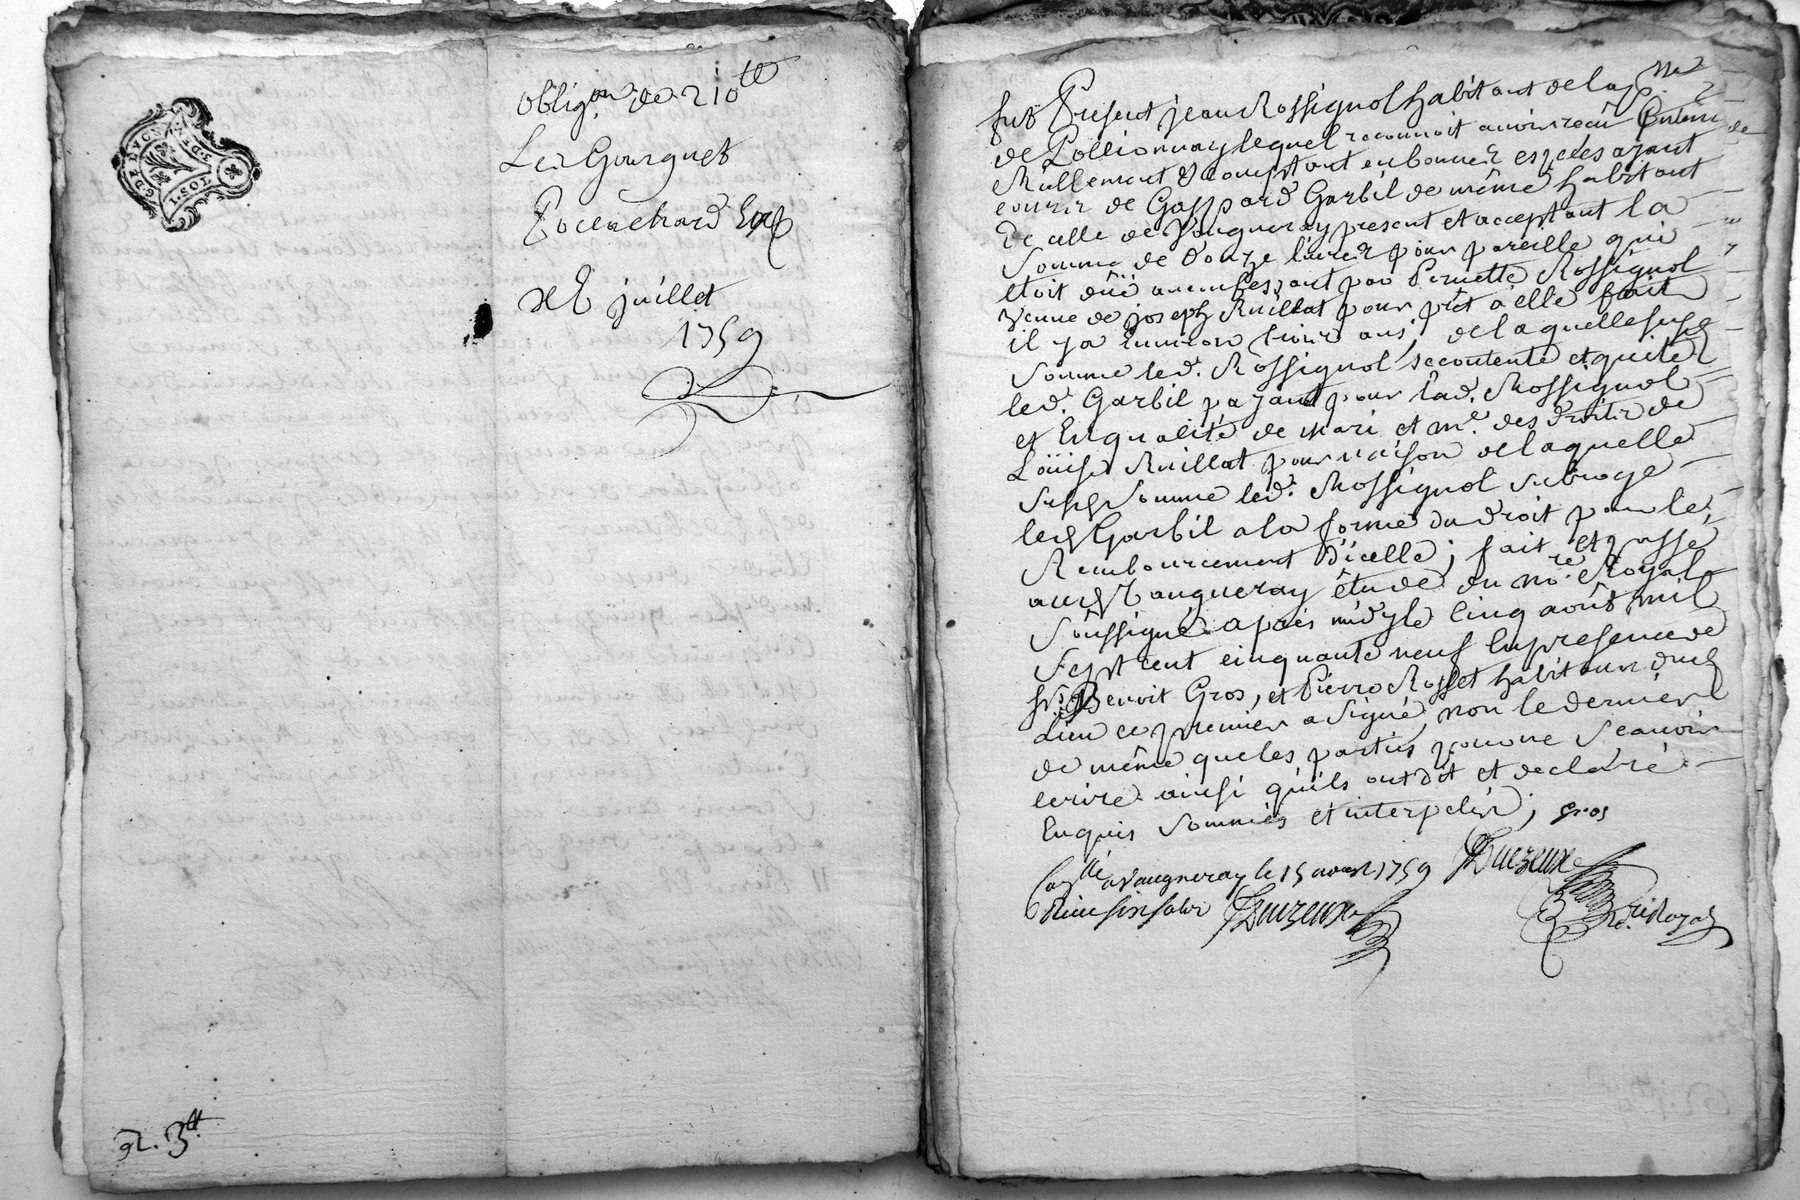 G. DE LYON
obligon de 210tt
Les Gourguet
Pocachard
juillet
1759
R. 3tt.
fut Present jean Rossignol habitant de la psse
de Pollionnay lequel reconnoit avoir reçu
Réellement et comptant en bonnes espèces ayant
cours de Gaspard Garbil de même habitant
de celle de Vaugneray present et acceptant la
somme de Douze livres pour pareille qui
étoit düe par Pernette Rossignol
veuve de joseph Ruillat pour prêt à elle fait
il y a environ trois ans, de laquelle susd
somme led. Rossignol se contente et quitte
led. Garbil payant pour lad. Rossignol
et en qualité de mari et me. des Droits de
Loüise Ruillat pour raison de laquelle
susd somme led. Rossignol subroge
led Garbil a la forme du Droit pour le
Rembourcement D'icelle; fait et passé
aud Vaugneray étude du nore. Royal
soussigné apres midy le cinq août mil
sept cent cinquante neuf En presence de
Benoit Gros, et Pierre Rosset habitans dud
Lieu ce premier a signé, non le dernier
de même que les parties pour ne sçavoir
ecrire ainsi qu'ils ont dit et declaré
Enquis sommés et interpelés; Gros
Conllé a Vaugneray le 15 aoust 1759 Duzeux
Reçu six sols Duzeux
Nre. Royal